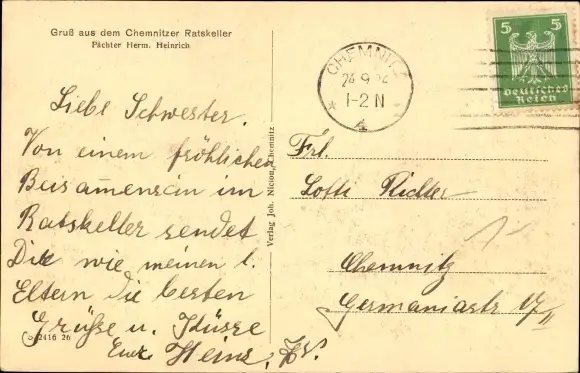 Gruß aus dem Chemnitzer Ratskeller
Pächter Herm. Heinrich
Liebe Schwester.
Von einem fröhlichen
Beisammensein im
Ratskeller sendet
Dir wie meinen l.
Eltern die besten
Grüße u. Küsse
Euer Heinz,
S 2416 26
Verlag Joh. Nicion, Chemnitz
CHEMNITZ
24.9.24
1-2 N
4
5 5
Deutsches
Reich
Frl.
Lotti Richter
Chemnitz
Germaniastr